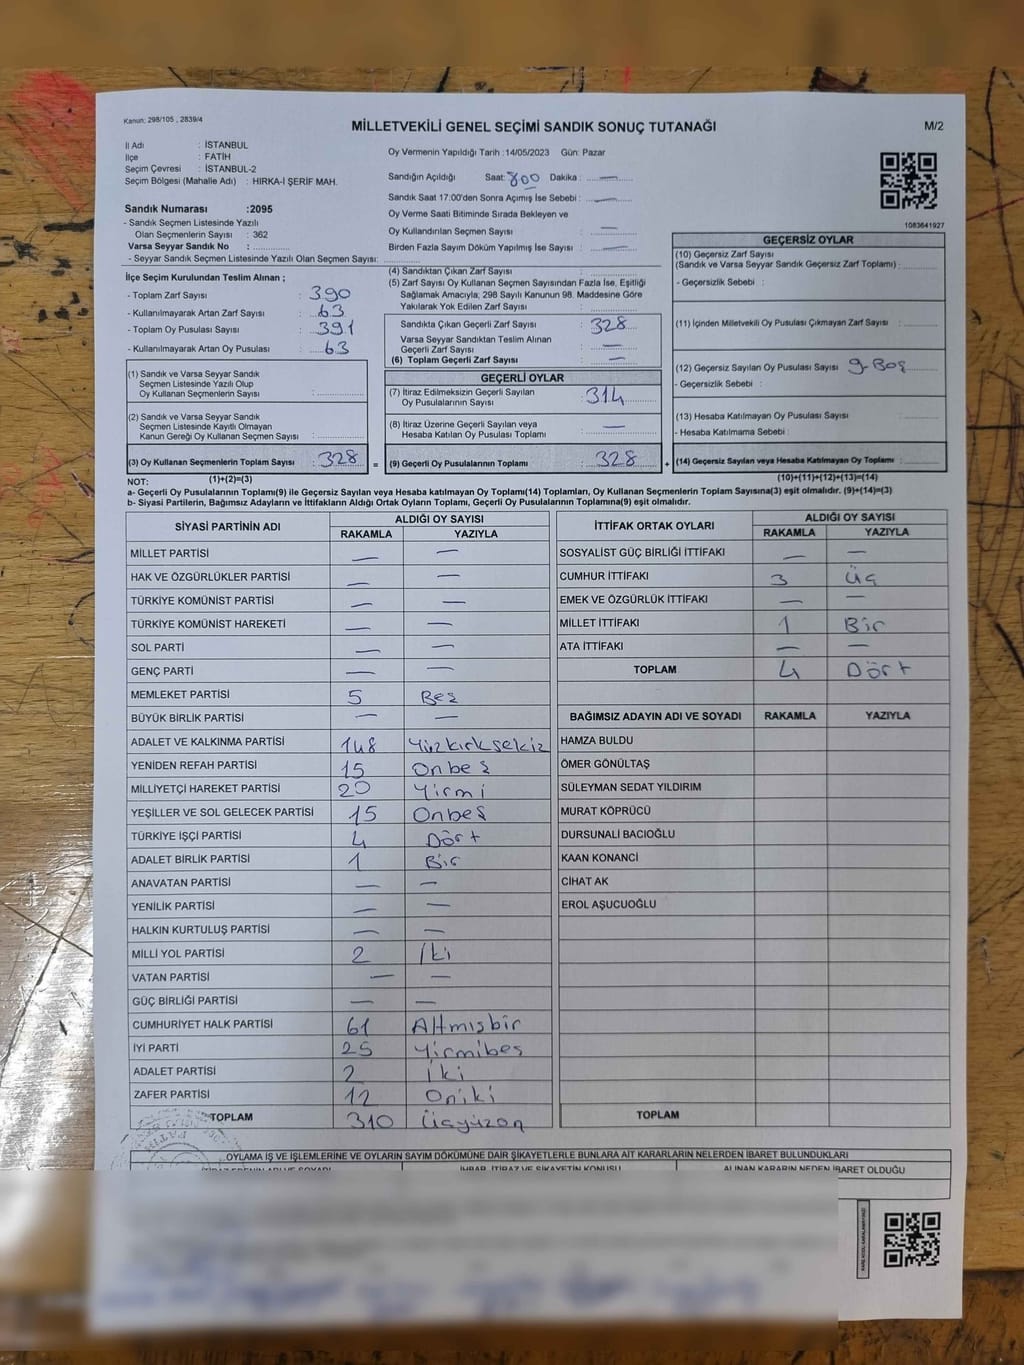 Kanun: 298/105 , 2839/4
MİLLETVEKİLİ GENEL SEÇİMİ SANDIK SONUÇ TUTANAĞI
M/2
İl Adı : İSTANBUL
İlçe : FATİH
Seçim Çevresi : İSTANBUL-2
Seçim Bölgesi (Mahalle Adı) : HIRKA-İ ŞERİF MAH.
Sandık Numarası :2095
- Sandık Seçmen Listesinde Yazılı
Olan Seçmenlerin Sayısı : 362
Varsa Seyyar Sandık No :
- Seyyar Sandık Seçmen Listesinde Yazılı Olan Seçmen Sayısı:
Oy Vermenin Yapıldığı Tarih :14/05/2023 Gün: Pazar
Sandığın Açıldığı Saat: 800 Dakika : —
Sandık Saat 17:00'den Sonra Açımış İse Sebebi : —
Oy Verme Saati Bitiminde Sırada Bekleyen ve
Oy Kullandırılan Seçmen Sayısı : —
Birden Fazla Sayım Döküm Yapılmış İse Sayısı : —
1083641927
İlçe Seçim Kurulundan Teslim Alınan ;
- Toplam Zarf Sayısı : 390
- Kullanılmayarak Artan Zarf Sayısı : 63
- Toplam Oy Pusulası Sayısı : 391
- Kullanılmayarak Artan Oy Pusulası : 63
(1) Sandık ve Varsa Seyyar Sandık
Seçmen Listesinde Yazılı Olup
Oy Kullanan Seçmenlerin Sayısı :
(2) Sandık ve Varsa Seyyar Sandık
Seçmen Listesinde Kayıtlı Olmayan
Kanun Gereği Oy Kullanan Seçmen Sayısı :
(3) Oy Kullanan Seçmenlerin Toplam Sayısı : 328 =
(1)+(2)=(3)
(4) Sandıktan Çıkan Zarf Sayısı :
(5) Zarf Sayısı Oy Kullanan Seçmen Sayısından Fazla İse, Eşitliği
Sağlamak Amacıyla; 298 Sayılı Kanunun 98. Maddesine Göre
Yakılarak Yok Edilen Zarf Sayısı :
Sandıkta Çıkan Geçerli Zarf Sayısı : 328
Varsa Seyyar Sandıktan Teslim Alınan
Geçerli Zarf Sayısı : —
(6) Toplam Geçerli Zarf Sayısı : —
GEÇERLİ OYLAR
(7) İtiraz Edilmeksizin Geçerli Sayılan
Oy Pusulalarının Sayısı : 314
(8) İtiraz Üzerine Geçerli Sayılan veya
Hesaba Katılan Oy Pusulası Toplamı : —
(9) Geçerli Oy Pusulalarının Toplamı : 328 +
GEÇERSİZ OYLAR
(10) Geçersiz Zarf Sayısı
(Sandık ve Varsa Seyyar Sandık Geçersiz Zarf Toplamı) :
- Geçersizlik Sebebi :
(11) İçinden Milletvekili Oy Pusulası Çıkmayan Zarf Sayısı :
(12) Geçersiz Sayılan Oy Pusulası Sayısı : 9-Boş
- Geçersizlik Sebebi :
(13) Hesaba Katılmayan Oy Pusulası Sayısı :
- Hesaba Katılmama Sebebi :
(14) Geçersiz Sayılan veya Hesaba Katılmayan Oy Toplamı :
(10)+(11)+(12)+(13)=(14)
NOT:
a- Geçerli Oy Pusulalarının Toplamı(9) ile Geçersiz Sayılan veya Hesaba katılmayan Oy Toplamı(14) Toplamları, Oy Kullanan Seçmenlerin Toplam Sayısına(3) eşit olmalıdır. (9)+(14)=(3)
b- Siyasi Partilerin, Bağımsız Adayların ve İttifakların Aldığı Ortak Oyların Toplamı, Geçerli Oy Pusulalarının Toplamına(9) eşit olmalıdır.
SİYASİ PARTİNİN ADI ALDIĞI OY SAYISI
RAKAMLA YAZIYLA
MİLLET PARTİSİ — —
HAK VE ÖZGÜRLÜKLER PARTİSİ — —
TÜRKİYE KOMÜNİST PARTİSİ — —
TÜRKİYE KOMÜNİST HAREKETİ — —
SOL PARTİ — —
GENÇ PARTİ — —
MEMLEKET PARTİSİ 5 Beş
BÜYÜK BİRLİK PARTİSİ — —
ADALET VE KALKINMA PARTİSİ 148 Yüzkırksekiz
YENİDEN REFAH PARTİSİ 15 Onbeş
MİLLİYETÇİ HAREKET PARTİSİ 20 Yirmi
YEŞİLLER VE SOL GELECEK PARTİSİ 15 Onbeş
TÜRKİYE İŞÇİ PARTİSİ 4 Dört
ADALET BİRLİK PARTİSİ 1 Bir
ANAVATAN PARTİSİ — —
YENİLİK PARTİSİ — —
HALKIN KURTULUŞ PARTİSİ — —
MİLLİ YOL PARTİSİ 2 İki
VATAN PARTİSİ — —
GÜÇ BİRLİĞİ PARTİSİ — —
CUMHURİYET HALK PARTİSİ 61 Altmışbir
İYİ PARTİ 25 Yirmibeş
ADALET PARTİSİ 2 İki
ZAFER PARTİSİ 12 Oniki
TOPLAM 310 Üçyüzon
İTTİFAK ORTAK OYLARI ALDIĞI OY SAYISI
RAKAMLA YAZIYLA
SOSYALİST GÜÇ BİRLİĞİ İTTİFAKI — —
CUMHUR İTTİFAKI 3 Üç
EMEK VE ÖZGÜRLÜK İTTİFAKI — —
MİLLET İTTİFAKI 1 Bir
ATA İTTİFAKI — —
TOPLAM 4 Dört
BAĞIMSIZ ADAYIN ADI VE SOYADI RAKAMLA YAZIYLA
HAMZA BULDU
ÖMER GÖNÜLTAŞ
SÜLEYMAN SEDAT YILDIRIM
MURAT KÖPRÜCÜ
DURSUNALİ BACIOĞLU
KAAN KONANCİ
CİHAT AK
EROL AŞUCUOĞLU
TOPLAM
OYLAMA İŞ VE İŞLEMLERİNE VE OYLARIN SAYIM DÖKÜMÜNE DAİR ŞİKAYETLERLE BUNLARA AİT KARARLARIN NELERDEN İBARET BULUNDUKLARI
İHBAR, İTİRAZ VE ŞİKAYETİN KONUSU ALINAN KARARIN NEDEN İBARET OLDUĞU